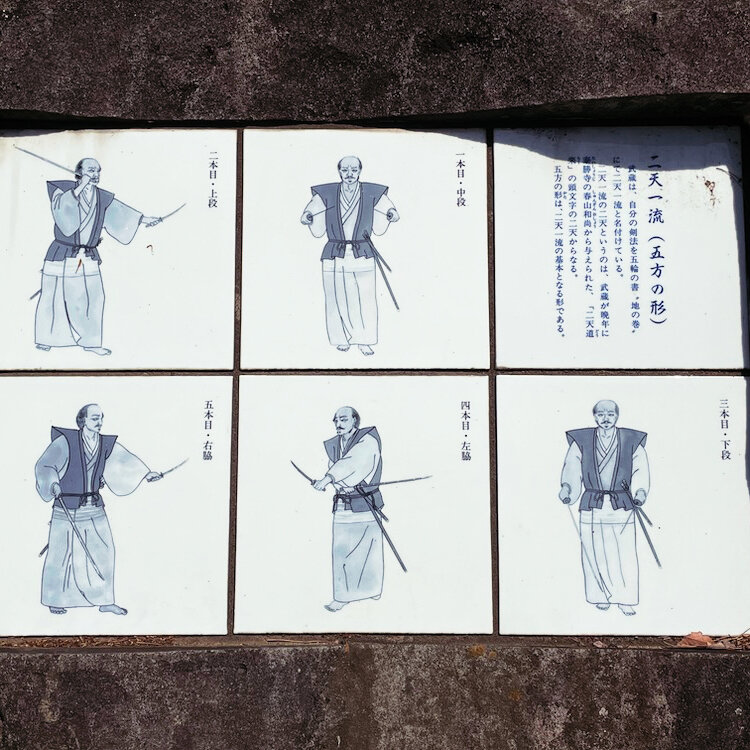 二天一流(五方の形)
武蔵は、自分の剣法を五輪の書〝地の巻〟
にて二天一流と名付けている。
二天一流の二天というのは、武蔵が晩年に
泰勝寺の春山和尚から与えられた、「二天道
楽」の頭文字の二天からなる。
五方の形は、二天一流の基本となる形である。
一本目・中段
二本目・上段
三本目・下段
四本目・左脇
五本目・右脇